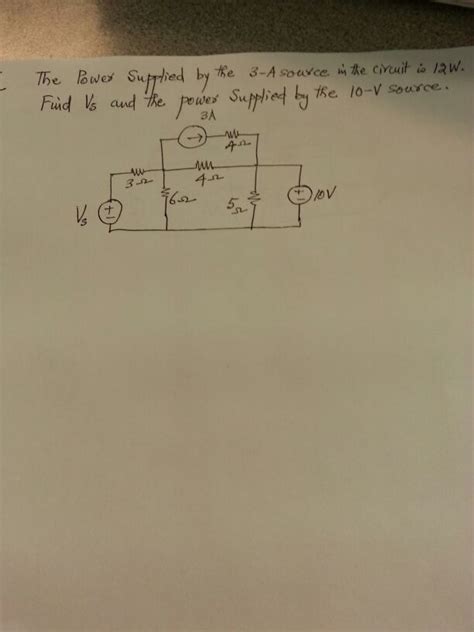 The Power Supplied by the 3-A source in the circuit is 12W.
Find Vs and the power Supplied by the 10-V source.
3A
4Ω
3Ω
4Ω
Vs
+
6Ω
5Ω
+
10V